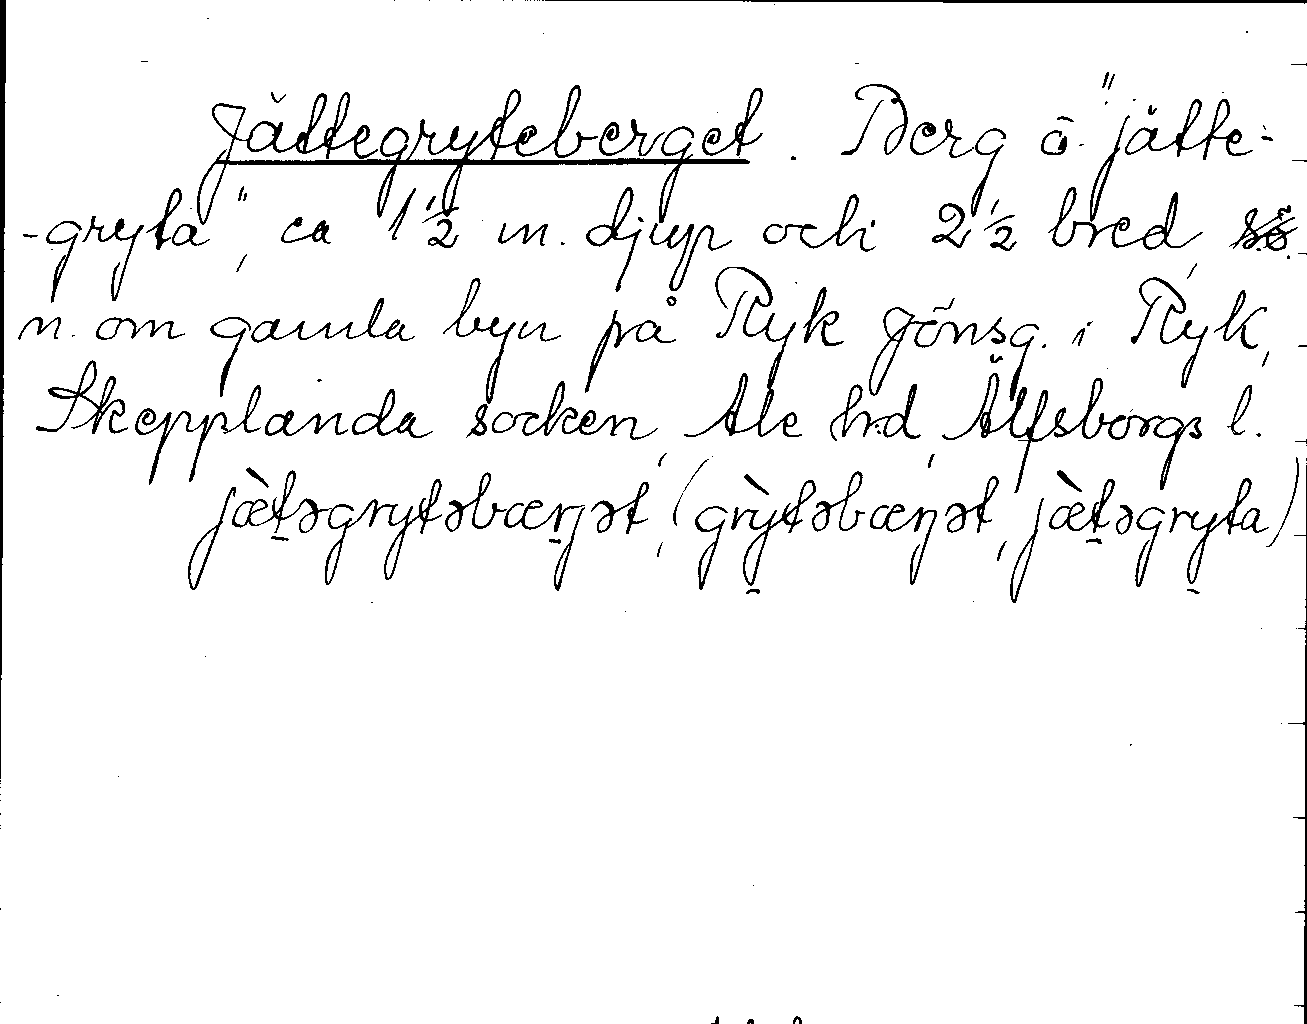 Jättegryteberget. Berg o. "jätte-
-gryta", ca 1½ m. djup och 2½ bred, s.ö.
n. om gamla byn på Ryk Jönsg. i Ryk,
Skepplanda socken, Ale hd, Älfsborgs l.
jæ̀t̠əgrytəbær̠jət, (grỳ̠təbæŋət, jæ̀t̠əgry̠ta)